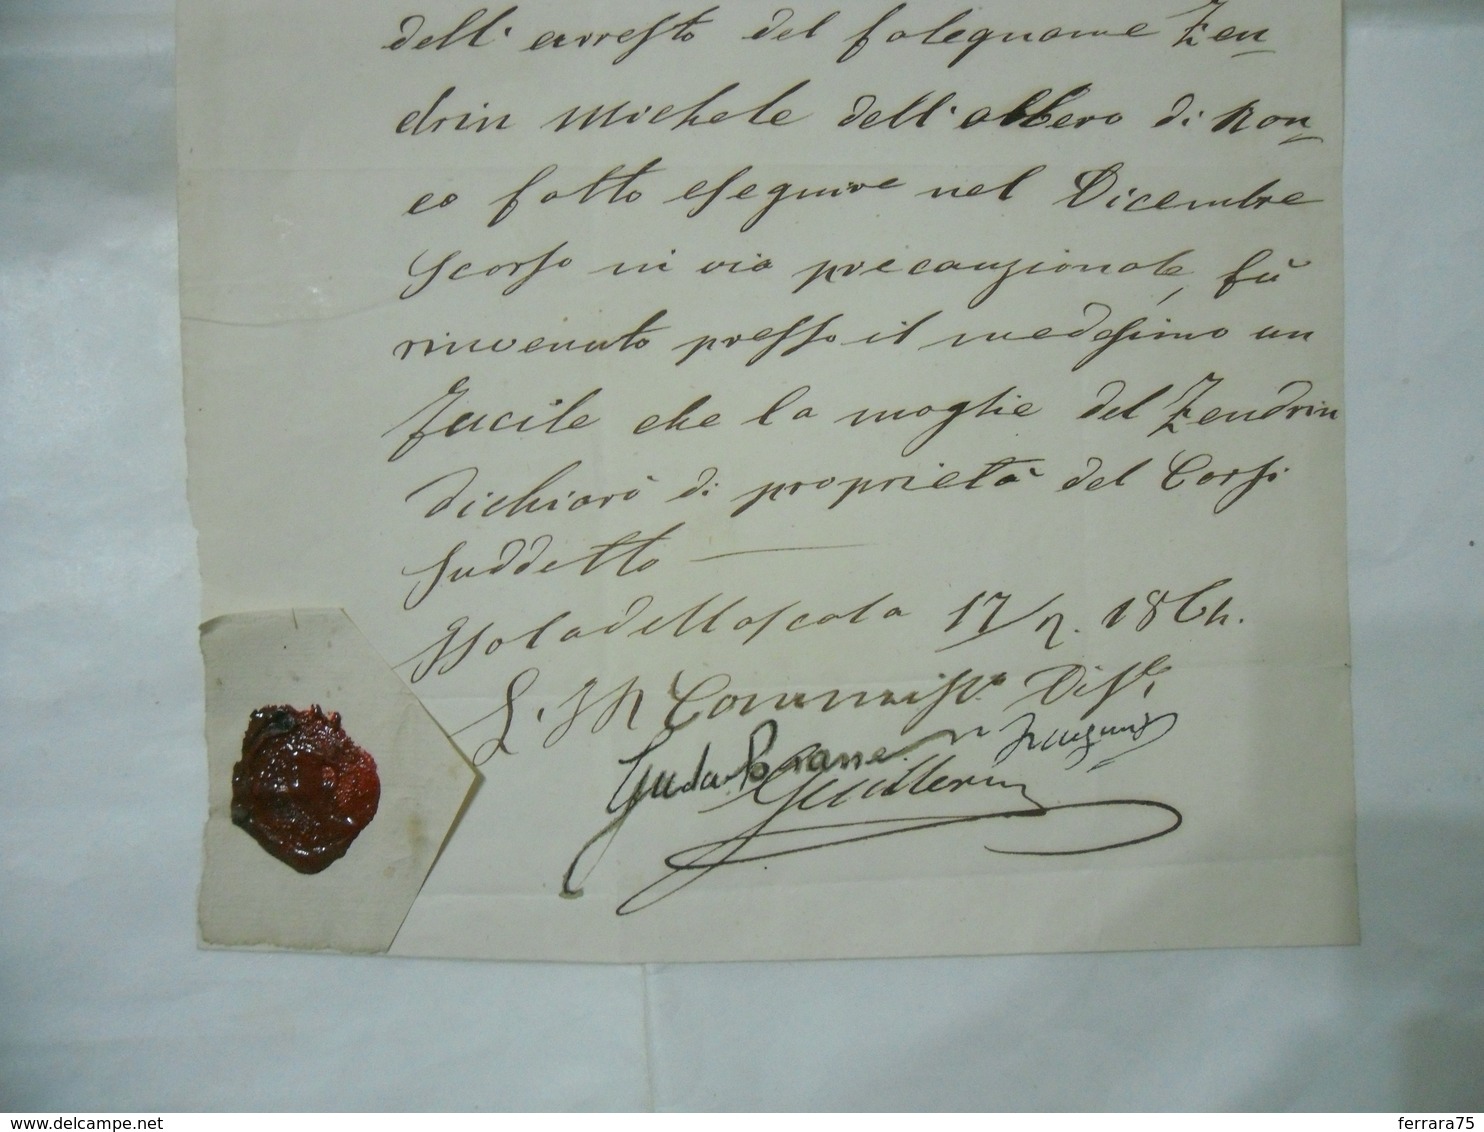 dell'arresto del falegname Zen-
drin Michele dell'albero di Ron-
co fatto eseguire nel Dicembre
scorso in via precauzionale, fù
rinvenuto presso il medesimo un
fucile che la moglie del Zendrin
dichiarò di proprietà del Corsi
suddetto —
Isola della Scala 17/2. 1864.
L'I R Commiss.º Dis.le
delcampe.net
ferrara75